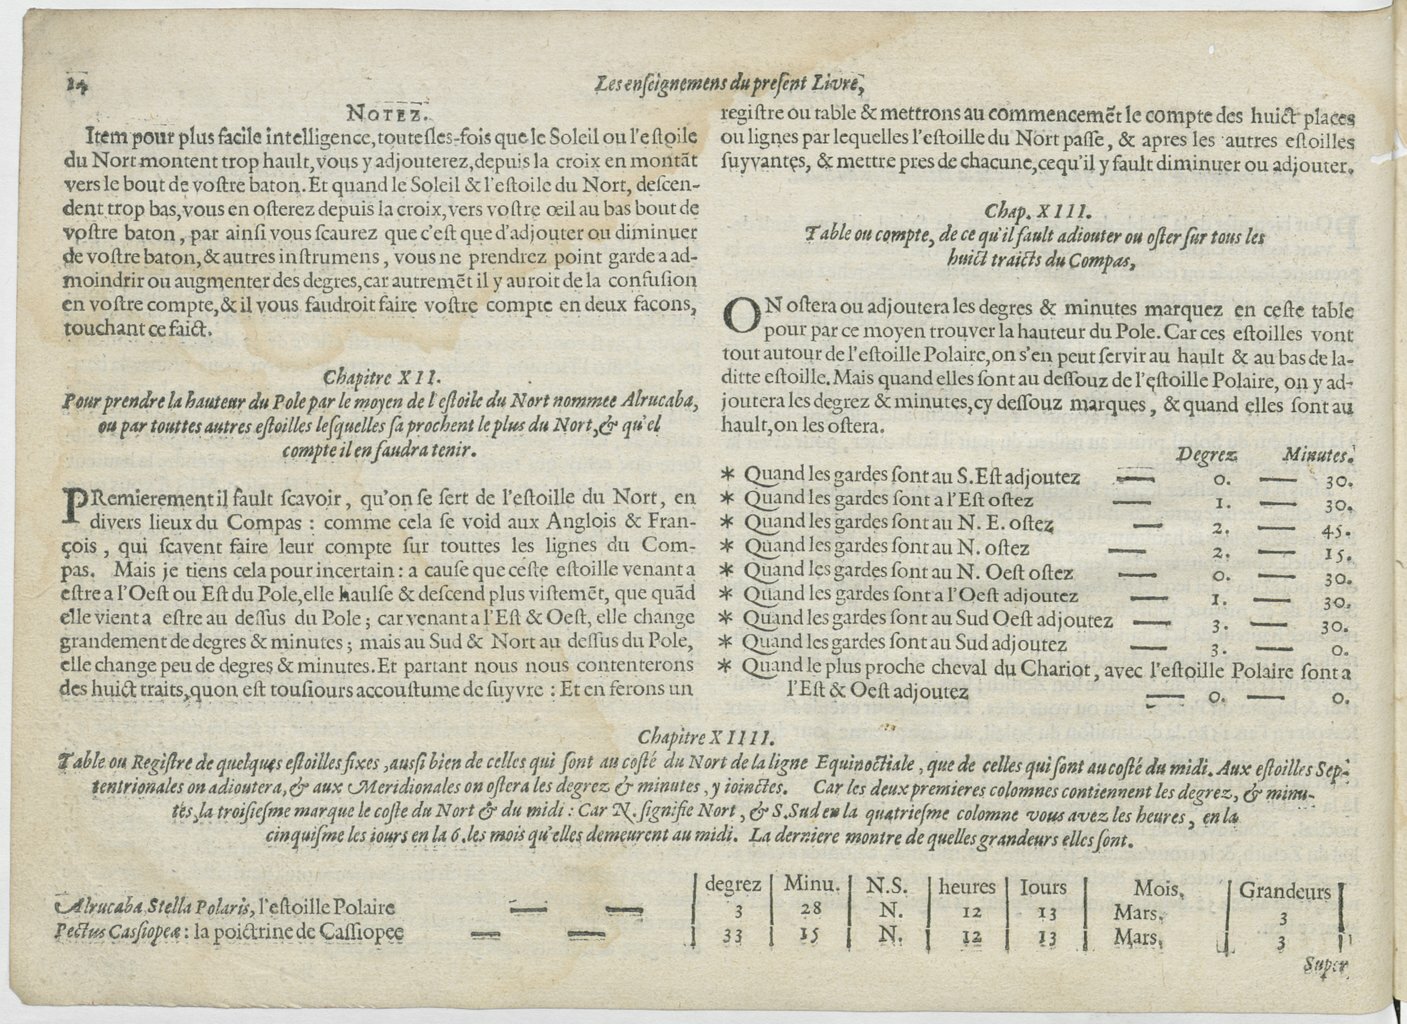 14
Les enseignemens du present Livre,
NOTEZ.
Item pour plus facile intelligence, toutesles-fois que le Soleil ou l'estoile
du Nort montent trop hault, vous y adjouterez, depuis la croix en montãt
vers le bout de vostre baton. Et quand le Soleil & l'estoile du Nort, descen-
dent trop bas, vous en osterez depuis la croix, vers vostre œil au bas bout de
vostre baton, par ainsi vous scaurez que c'est que d'adjouter ou diminuer
de vostre baton, & autres instrumens, vous ne prendrez point garde a ad-
moindrir ou augmenter des degres, car autremẽt il y auroit de la confusion
en vostre compte, & il vous faudroit faire vostre compte en deux facons,
touchant ce faict.
Chapitre XII.
Pour prendre la hauteur du Pole par le moyen de l'estoile du Nort nommee Alrucaba,
ou par touttes autres estoilles lesquelles sa prochent le plus du Nort, & qu'el
compte il en faudra tenir.
PRemierement il fault scavoir, qu'on se sert de l'estoille du Nort, en
divers lieux du Compas : comme cela se void aux Anglois & Fran-
çois, qui scavent faire leur compte sur touttes les lignes du Com-
pas. Mais je tiens cela pour incertain : a cause que ceste estoille venant a
estre a l'Oest ou Est du Pole, elle haulse & descend plus vistemẽt, que quãd
elle vient a estre au dessus du Pole ; car venant a l'Est & Oest, elle change
grandement de degres & minutes ; mais au Sud & Nort au dessus du Pole,
elle change peu de degres & minutes. Et partant nous nous contenterons
des huict traits, quon est tousiours accoustume de suyvre : Et en ferons un
registre ou table & mettrons au commencemẽt le compte des huict places
ou lignes par lequelles l'estoille du Nort passe, & apres les autres estoilles
suyvantes, & mettre pres de chacune, ce qu'il y fault diminuer ou adjouter.
Chap. XIII.
Table ou compte, de ce qu'il fault adiouter ou oster sur tous les
huict traicts du Compas,
ON ostera ou adjoutera les degres & minutes marquez en ceste table
pour par ce moyen trouver la hauteur du Pole. Car ces estoilles vont
tout autour de l'estoille Polaire, on s'en peut servir au hault & au bas de la-
ditte estoille. Mais quand elles sont au dessouz de l'estoille Polaire, on y ad-
joutera les degrez & minutes, cy dessouz marques, & quand elles sont au
hault, on les ostera.
Degrez Minutes.
* Quand les gardes sont au S. Est adjoutez — 0. — 30.
* Quand les gardes sont a l'Est ostez — 1. — 30.
* Quand les gardes sont au N. E. ostez — 2. — 45.
* Quand les gardes sont au N. ostez — 2. — 15.
* Quand les gardes sont au N. Oest ostez — 0. — 30.
* Quand les gardes sont a l'Oest adjoutez — 1. — 30.
* Quand les gardes sont au Sud Oest adjoutez — 3. — 30.
* Quand les gardes sont au Sud adjoutez — 3. — 0.
* Quand le plus proche cheval du Chariot, avec l'estoille Polaire sont a
l'Est & Oest adjoutez — 0. — 0.
Chapitre XIIII.
Table ou Registre de quelques estoilles fixes, aussi bien de celles qui sont au costé du Nort de la ligne Equinoctiale, que de celles qui sont au costé du midi. Aux estoilles Sep-
tentrionales on adioutera, & aux Meridionales on ostera les degrez & minutes, y joinctes. Car les deux premieres colomnes contiennent les degrez, & minu-
tes, la troisiesme marque le coste du Nort & du midi : Car N. signifie Nort, & S. Sud en la quatriesme colomne vous avez les heures, en la
cinquisme les jours en la 6. les mois qu'elles demeurent au midi. La derniere montre de quelles grandeurs elles sont.
degrez | Minu. | N.S. | heures | Iours | Mois, | Grandeurs
Alrucaba Stella Polaris, l'estoille Polaire — — | 3 | 28 | N. | 12 | 13 | Mars. | 3
Pectus Cassiopeæ : la poictrine de Cassiopee — — | 33 | 15 | N. | 12 | 13 | Mars. | 3
Super